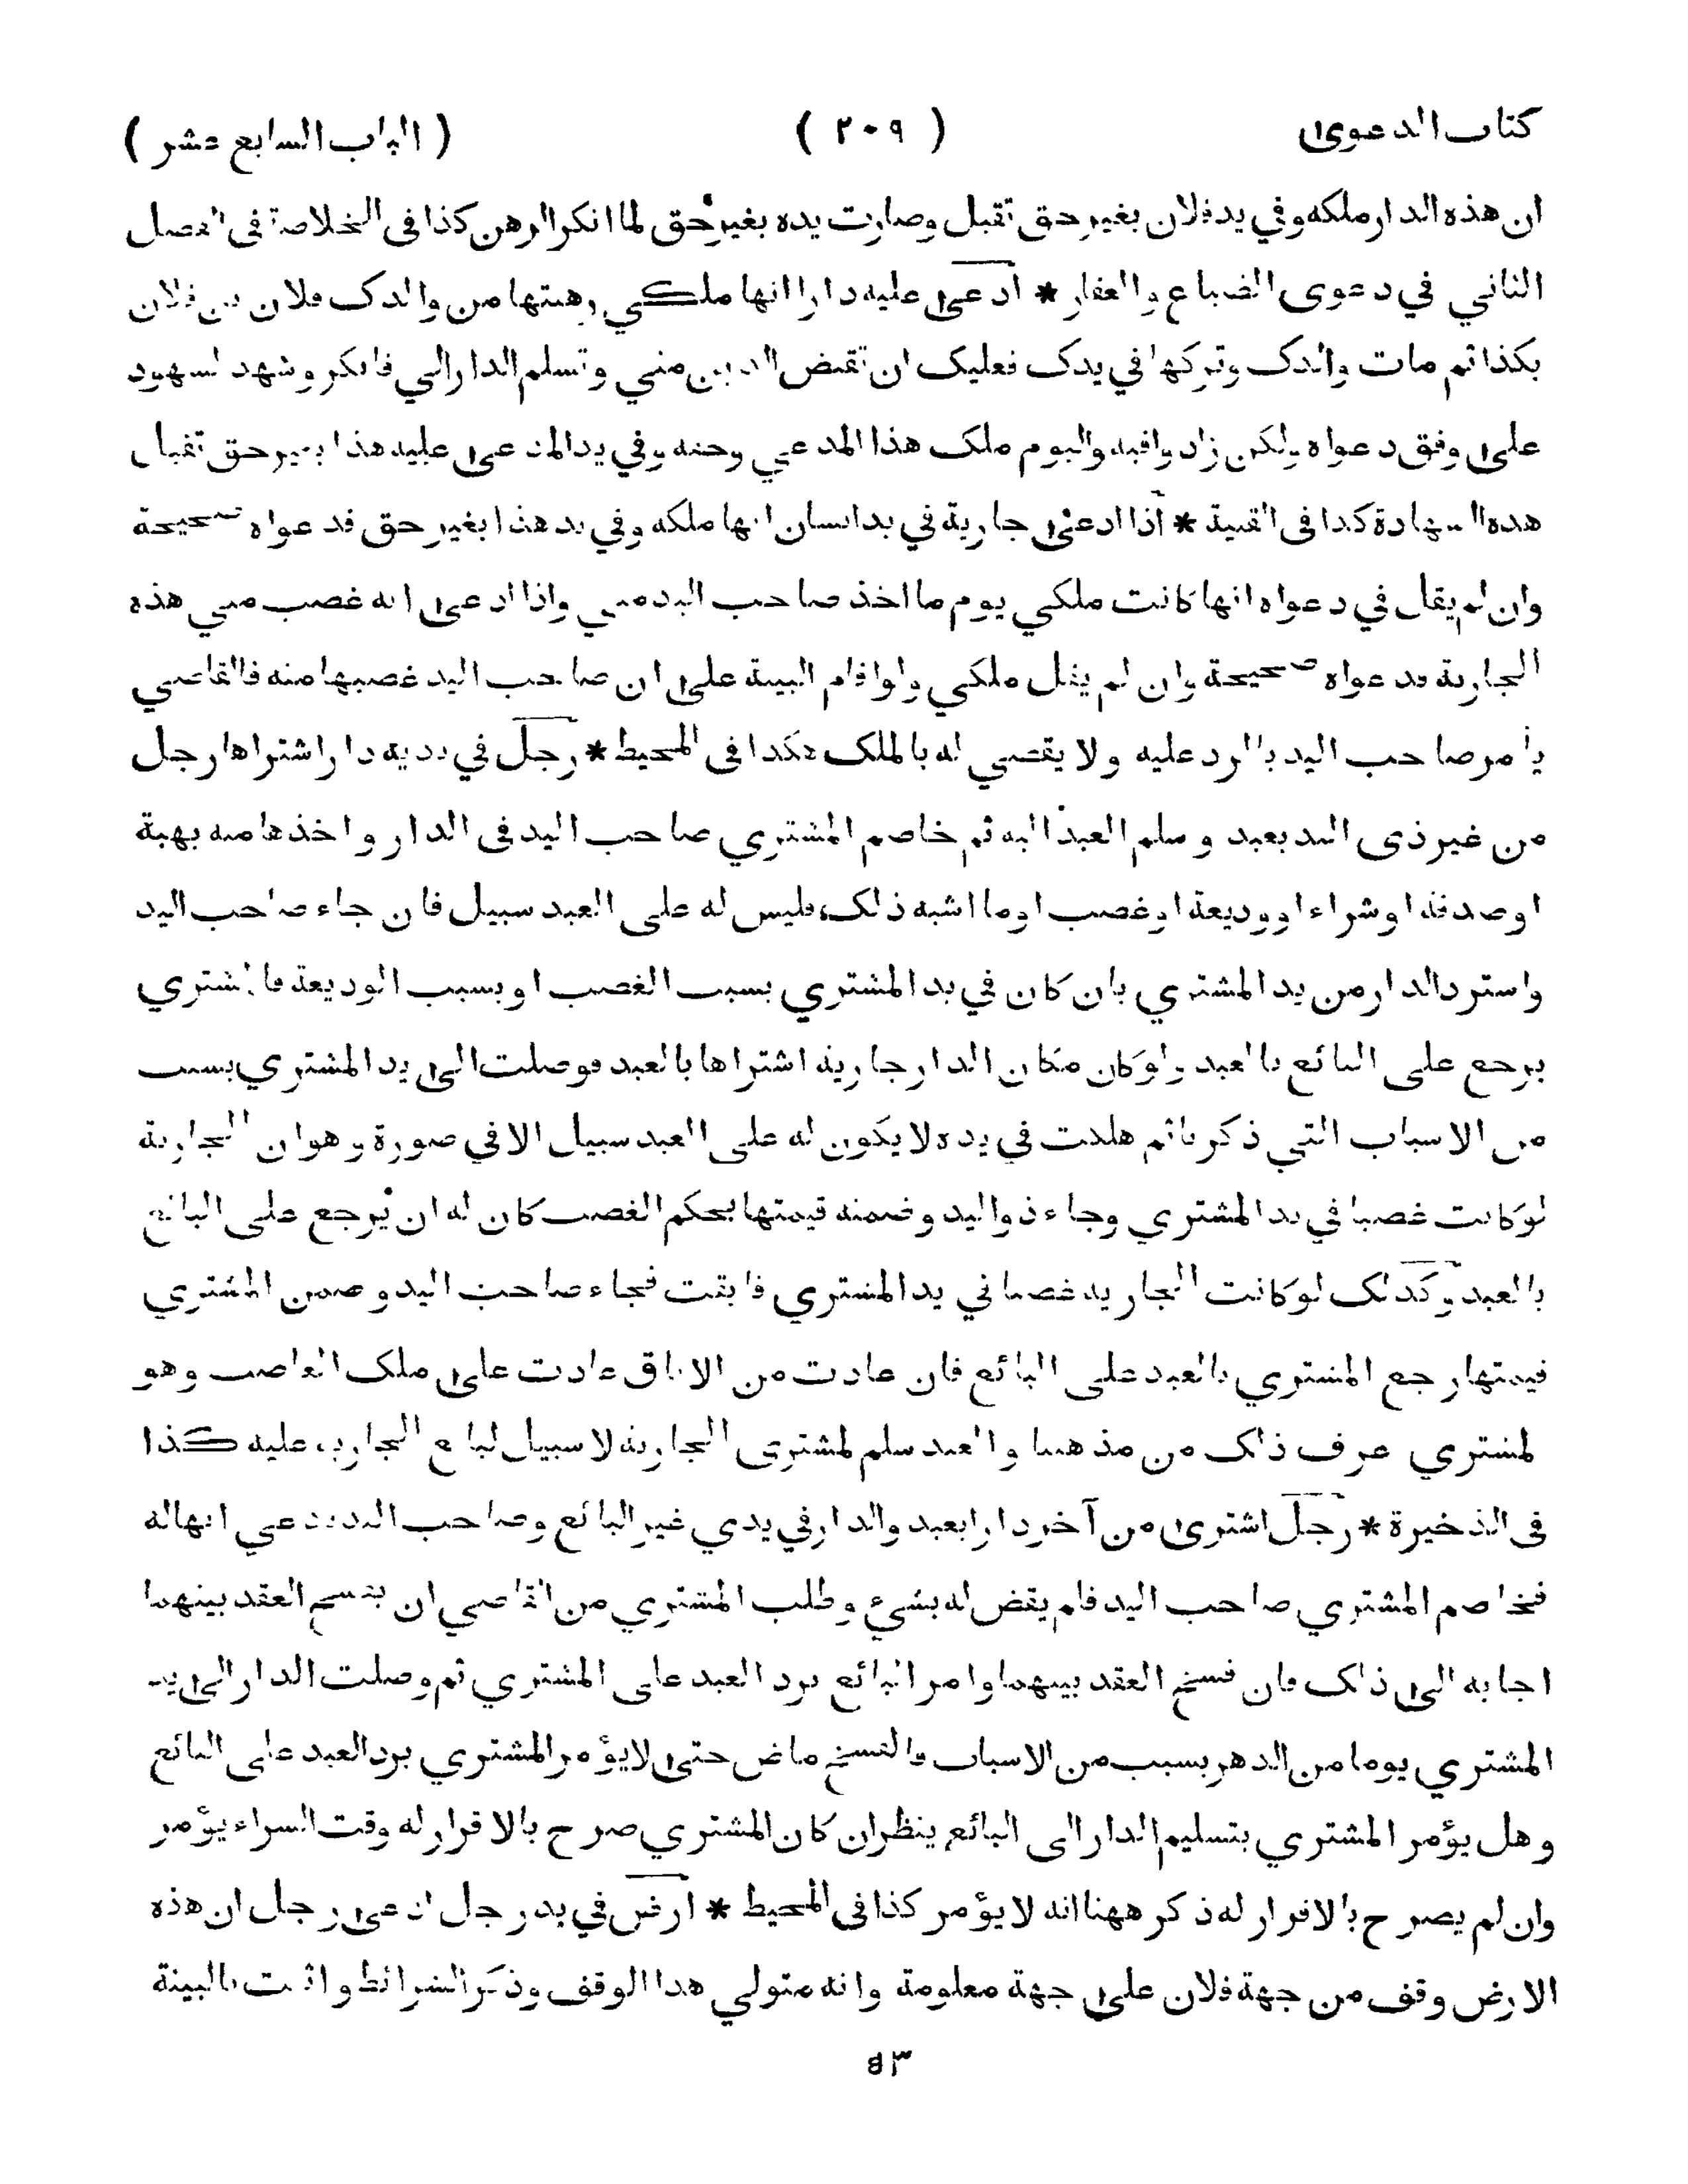 كتاب الدعوى ( ٢٠٩ ) ( الباب السابع عشر )
ان هذه الدار ملكه وفي يد فلان بغير حق تقبل وصارت يده بغير حق لما انكر الرهن كذا فى الخلاصة فى الفصل
الثاني في دعوى الضياع والعقار * ادعى عليه دارا انها ملكي رهنتها من والدك فلان بن فلان
بكذا ثم مات والدك وتركها في يدك فعليك ان تقبض الدين مني وتسلم الدار الي فانكر وشهد الشهود
على وفق دعواه ولكن زادوا فيه واليوم ملك هذا المدعي وحقه وفي يد المدعى عليه هذا بغير حق تقبل
هذه الشهادة كذا فى القنية * اذا ادعى جارية في يد انسان انها ملكه وفي يد هذا بغير حق فدعواه صحيحة
وان لم يقل في دعواه انها كانت ملكي يوم ما اخذ صاحب اليد مني واذا ادعى انه غصب مني هذه
الجارية فدعواه صحيحة وان لم يقل ملكي ولو اقام البينة على ان صاحب اليد غصبها منه فالقاضي
يأمر صاحب اليد بالرد عليه ولا يقضي له بالملك هكذا فى المحيط * رجل في يديه دار اشتراها رجل
من غير ذى اليد بعبد وسلم العبد اليه ثم خاصم المشتري صاحب اليد فى الدار واخذها منه بهبة
او صدقة او شراء او وديعة او غصب او ما اشبه ذلك فليس له على العبد سبيل فان جاء صاحب اليد
واسترد الدار من يد المشتري بان كان في يد المشتري بسبب الغصب او بسبب الوديعة فالمشتري
يرجع على البائع بالعبد ولو كان مكان الدار جارية اشتراها بالعبد فوصلت الى يد المشتري بسبب
من الاسباب التي ذكرنا ثم هلكت في يده لا يكون له على العبد سبيل الا في صورة وهو ان الجارية
لو كانت غصبا في يد المشتري وجاء ذو اليد وضمنه قيمتها بحكم الغصب كان له ان يرجع على البائع
بالعبد وكذلك لو كانت الجارية غصبا في يد المشتري فابقت فجاء صاحب اليد وضمن المشتري
قيمتها رجع المشتري بالعبد على البائع فان عادت من الاباق عادت على ملك الغاصب وهو
لمشتري عرف ذلك من مذهبنا والعبد سلم لمشترى الجارية لا سبيل لبائع الجارية عليه كذا
فى الذخيرة * رجل اشترى من آخر دارا بعبد والدار في يدي غير البائع وصاحب اليد يدعي انها له
فخاصم المشتري صاحب اليد فلم يقض له بشيء وطلب المشتري من القاضي ان يفسخ العقد بينهما
اجابه الى ذلك فان فسخ العقد بينهما وامر البائع برد العبد على المشتري ثم وصلت الدار الى يد
المشتري يوما من الدهر بسبب من الاسباب فالفسخ ماض حتى لا يؤمر المشتري برد العبد على البائع
وهل يؤمر المشتري بتسليم الدار الى البائع ينظر ان كان المشتري صرح بالاقرار له وقت الشراء يؤمر
وان لم يصرح بالاقرار له ذكر ههنا انه لا يؤمر كذا فى المحيط * ارض في يد رجل ادعى رجل ان هذه
الارض وقف من جهة فلان على جهة معلومة وانه متولي هذا الوقف وذكر الشرائط واثبت بالبينة
٥٣